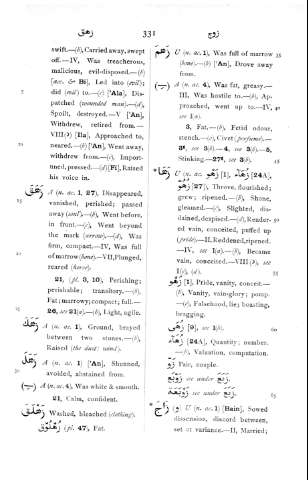 زهق 331 زوج
swift.—(b), Carried away, swept
off.—IV, Was treacherous,
malicious, evil-disposed.—(b)
[acc. & Bi], Led into (evil);
did (evil) to.—(c) ['Ala], Dis-
patched (wounded man).—(d),
Spoilt, destroyed.—V ['An],
Withdrew, retired from.—
VIII(b) [Ila], Approached to,
neared.—(b) ['An], Went away,
withdrew from.—(c), Import-
uned, pressed.—(d) [Fi], Raised
his voice in.
زَهَقَ A (n. ac. 1, 27), Disappeared,
vanished, perished; passed
away (soul).—(b), Went before,
in front.—(c), Went beyond
the mark (arrow).—(d), Was
firm, compact.—IV, Was full
of marrow (bone).—VII, Plunged,
reared (horse).
21, (pl. 3, 10), Perishing;
perishable; transitory.—(b),
Fat; marrowy; compact; full.—
26, see 21(a).—(b), Light, agile.
زَهَكَ A (n. ac. 1), Ground, brayed
between two stones.—(b),
Raised (the dust: wind).
زَهَلَ A (n. ac. 1) ['An], Shunned,
avoided, abstained from.
(—ِ) A (n. ac. 4), Was white & smooth.
21, Calm, confident.
زَهْلَقَ Washed, bleached (clothing).
زُهْلُوْق (pl. 47), Fat.
زَهَمَ U (n. ac. 1), Was full of marrow
(bone).—(b) ['An], Drove away
from.
(—ِ) A (n. ac. 4), Was fat, greasy.—
III, Was hostile to.—(b), Ap-
proached, went up to.—IV,
see I(a).
3, Fat.—(b), Fetid odour,
stench.—(c), Civet (perfume).—
3ᵃ, see 3(b).—4, see 3(b).—5,
Stinking.—27ᵃ, see 3(b).
زَهَا U (n. ac. زَهْو [1], زُهُوّ [24A],
زُهُوّ [27]), Throve, flourished;
grew; ripened.—(b), Shone,
gleamed.—(c), Slighted, dis-
dained, despised.—(d), Render-
ed vain, conceited, puffed up
(pride).—II, Reddened, ripened.
—IV, see I(a).—(b), Became
vain, conceited.—VIII(b), see
I(c), (d).
زَهْو [1], Pride, vanity, conceit.—
(b), Vanity, vain-glory; pomp.
—(c), Falsehood, lie; boasting,
bragging.
[9], see 1(b).
زُهَآء [24A], Quantity; number.
—(b), Valuation, computation.
زَوّ Pair, couple.
see under
see under
زَاجَ (و) U (n. ac. 1) [Bain], Sowed
dissension, discord between,
set at variance.—II, Married;